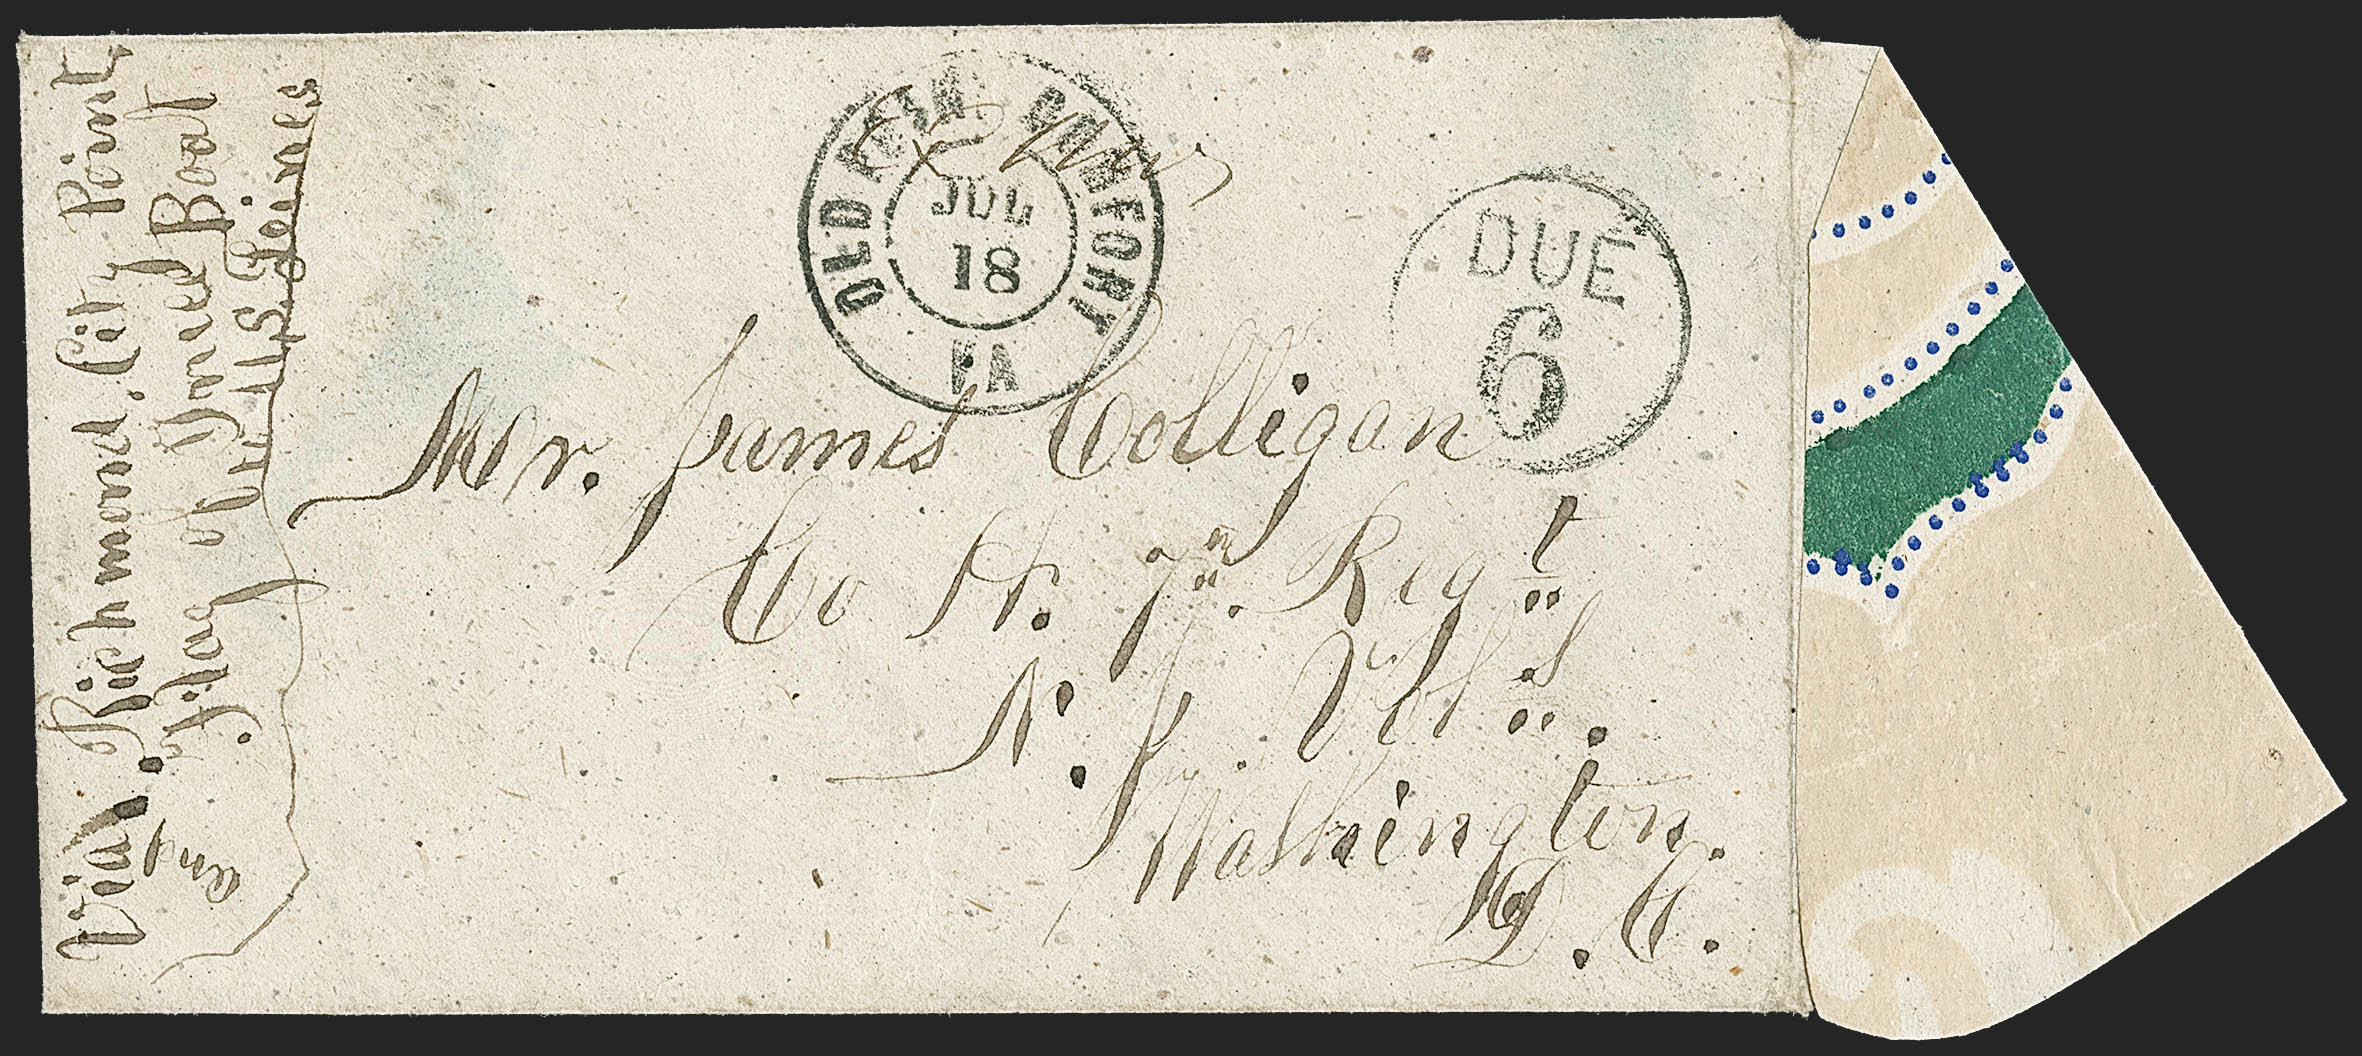 Via. Richmond. City Point
and Flag of Truce Boat
to U.S. Lines
OLD POINT COMFORT
JUL
18
VA
Ex
DUE
6
Mr. James Colligan
Co A. 7th. Regt
N. J. Vols.
Washington.
D. C.